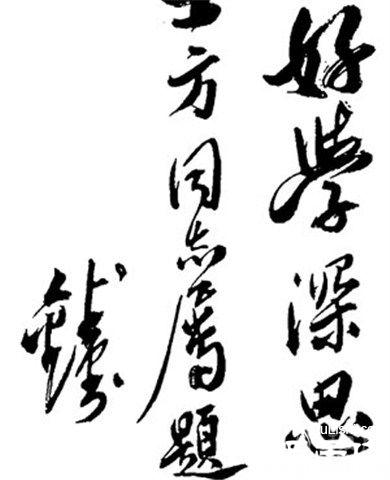 好学深思
方同志属题